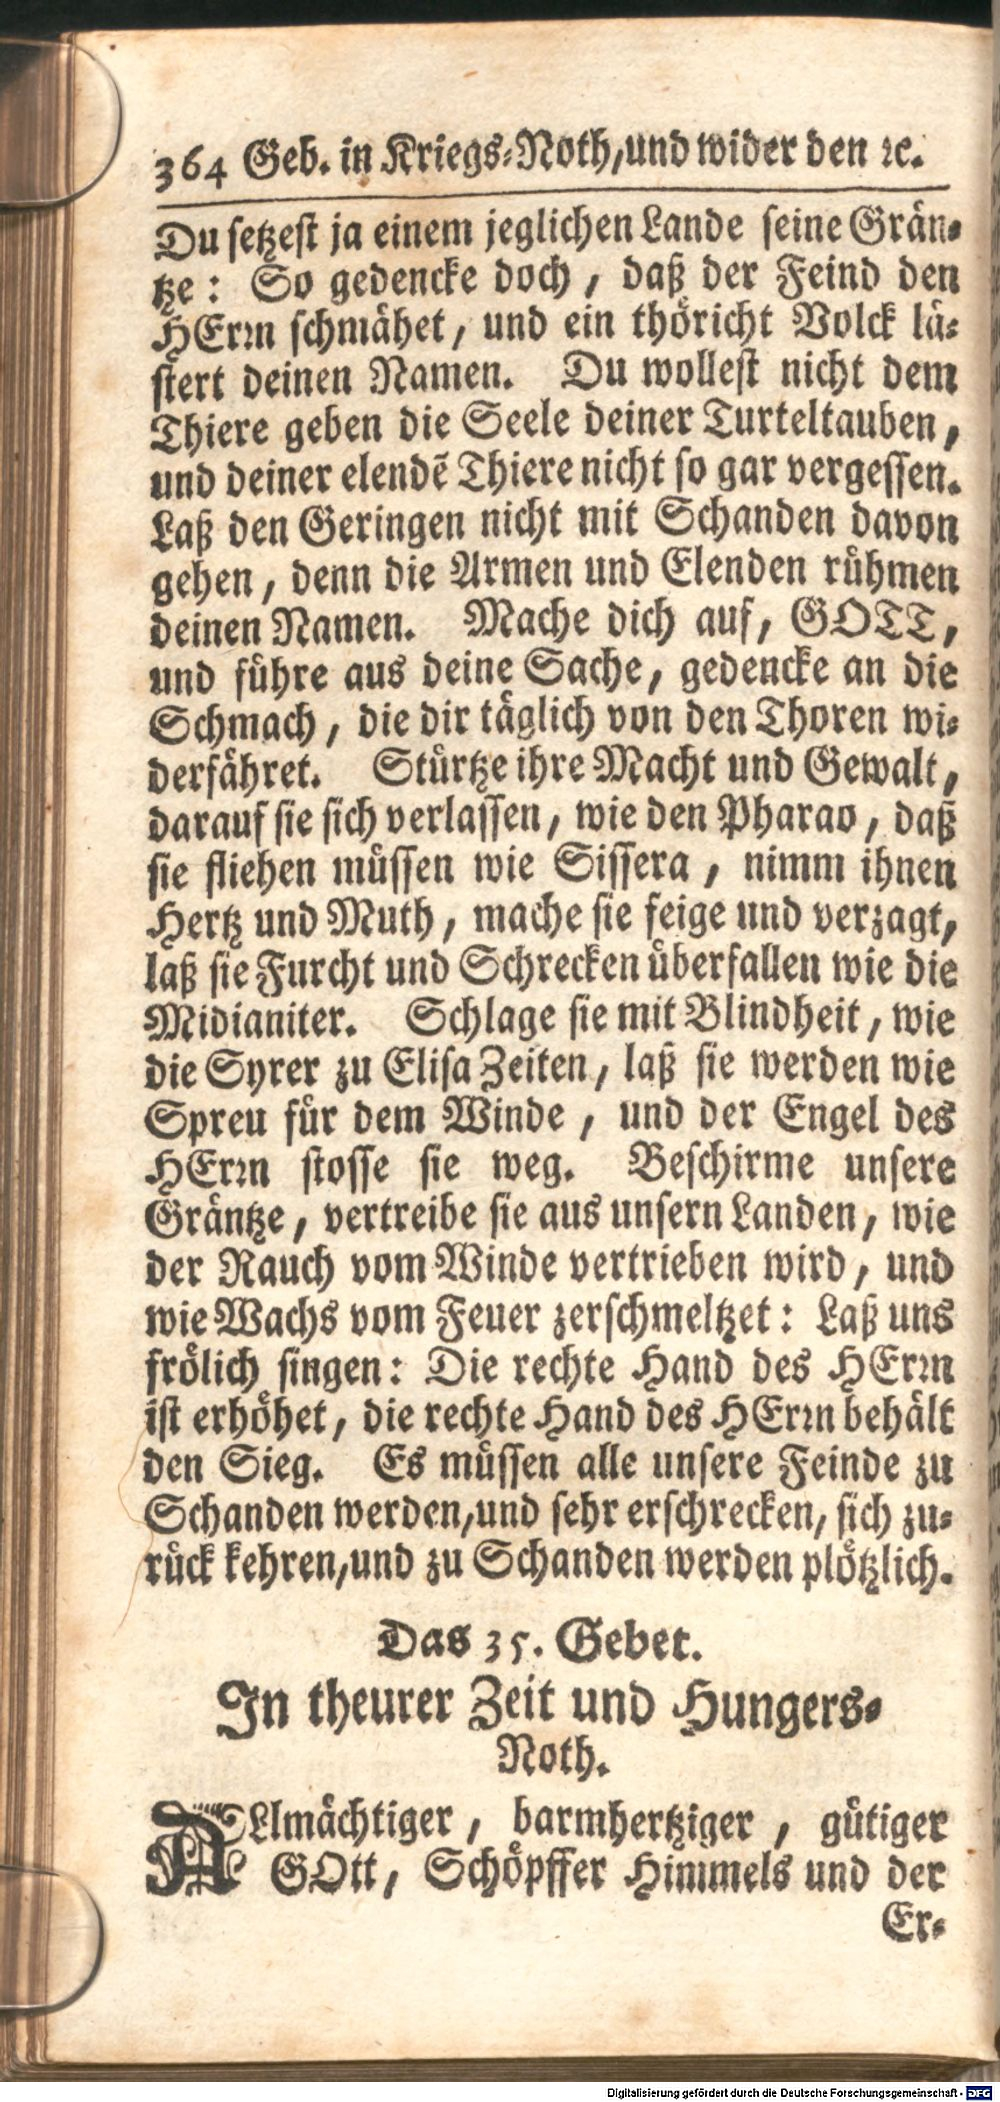 364 Geb. in Kriegs-Noth, und wider den ꝛc.
Du setzest ja einem jeglichen Lande seine Grän-
tze: So gedencke doch, daß der Feind den
HErꝛn schmähet, und ein thöricht Volck lä-
stert deinen Namen. Du wollest nicht dem
Thiere geben die Seele deiner Turteltauben,
und deiner elendẽ Thiere nicht so gar vergessen.
Laß den Geringen nicht mit Schanden davon
gehen, denn die Armen und Elenden rühmen
deinen Namen. Mache dich auf, GOTT,
und führe aus deine Sache, gedencke an die
Schmach, die dir täglich von den Thoren wi-
derfähret. Stürtze ihre Macht und Gewalt,
darauf sie sich verlassen, wie den Pharao, daß
sie fliehen müssen wie Sissera, nimm ihnen
Hertz und Muth, mache sie feige und verzagt,
laß sie Furcht und Schrecken überfallen wie die
Midianiter. Schlage sie mit Blindheit, wie
die Syrer zu Elisa Zeiten, laß sie werden wie
Spreu für dem Winde, und der Engel des
HErꝛn stosse sie weg. Beschirme unsere
Gräntze, vertreibe sie aus unsern Landen, wie
der Rauch vom Winde vertrieben wird, und
wie Wachs vom Feuer zerschmeltzet: Laß uns
frölich singen: Die rechte Hand des HErꝛn
ist erhöhet, die rechte Hand des HErꝛn behält
den Sieg. Es müssen alle unsere Feinde zu
Schanden werden, und sehr erschrecken, sich zu-
rück kehren, und zu Schanden werden plötzlich.
Das 35. Gebet.
In theurer Zeit und Hungers-
Noth.
ALlmächtiger, barmhertziger, gütiger
GOtt, Schöpffer Himmels und der
Er-
Digitalisierung gefördert durch die Deutsche Forschungsgemeinschaft - DFG